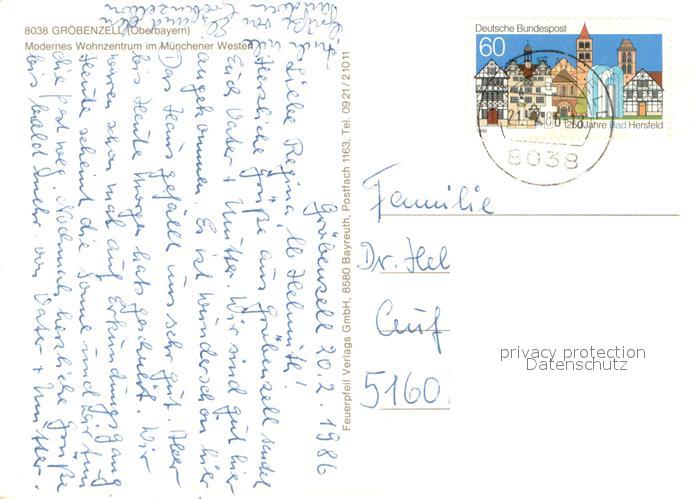 8038 GRÖBENZELL (Oberbayern)
Modernes Wohnzentrum im Münchener Westen
Feuerpfeil Verlags GmbH, 8580 Bayreuth, Postfach 1163, Tel. 0921 / 21011
Deutsche Bundespost
60
1250 Jahre Bad Hersfeld
1986
8038
Gröbenzell 20.2.1986
Liebe Regina, lb Helmuth!
Herzliche Grüße aus Gröbenzell sendet
Euch Vater + Mutter. Wir sind gut hier
angekommen. Es ist wunderschön hier
Das Haus gefällt uns sehr gut. Aber
bis heute morgen hats geschneit. Wir
waren schon mal auf Erkundungsgang
Heute scheint die Sonne und
die fast weg. Nochmal herzliche Grüße
bis bald mehr von Vater + Mutter.
Familie
Dr. Hel
Auf
5160
privacy protection
Datenschutz